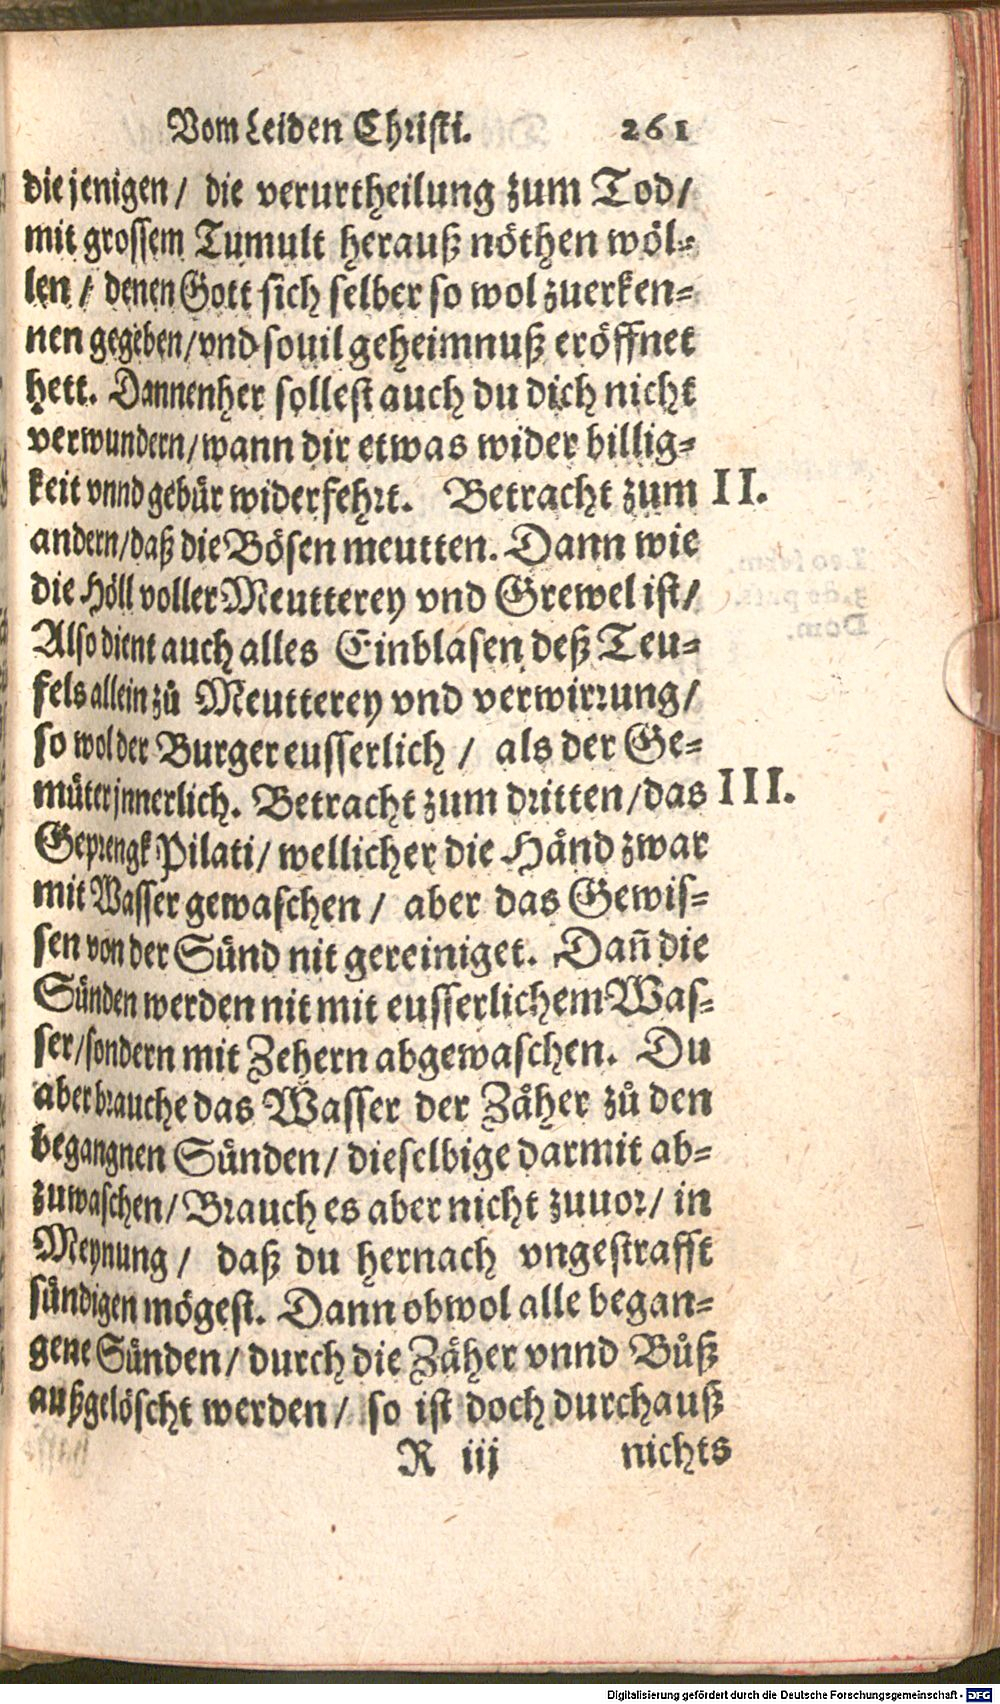 Vom Leiden Christi. 261
die jenigen / die verurtheilung zum Tod /
mit grossem Tumult herauß nöthen wöl-
len / denen Gott sich selber so wol zuerken-
nen gegeben / vnd souil geheimnuß eröffnet
hett. Dannenher sollest auch du dich nicht
verwundern / wann dir etwas wider billig-
keit vnnd gebür widerfehrt. Betracht zum II.
andern / daß die Bösen meutten. Dann wie
die Höll voller Meutterey vnd Grewel ist /
Also dient auch alles Einblasen deß Teu-
fels allein zů Meutterey vnd verwirrung /
so wol der Burger eusserlich / als der Ge-
müter jnnerlich. Betracht zum dritten / das III.
Geprengk Pilati / wellicher die Händ zwar
mit Wasser gewaschen / aber das Gewis-
sen von der Sünd nit gereiniget. Dañ die
Sünden werden nit mit eusserlichem Was-
ser / sondern mit Zehern abgewaschen. Du
aber brauche das Wasser der Zäher zů den
begangnen Sünden / dieselbige darmit ab-
zuwaschen / Brauch es aber nicht zuuor / in
Meynung / daß du hernach vngestrafft
sündigen mögest. Dann obwol alle began-
gene Sünden / durch die Zäher vnnd Bůß
außgelöscht werden / so ist doch durchauß
R iij nichts
Digitalisierung gefördert durch die Deutsche Forschungsgemeinschaft - DFG